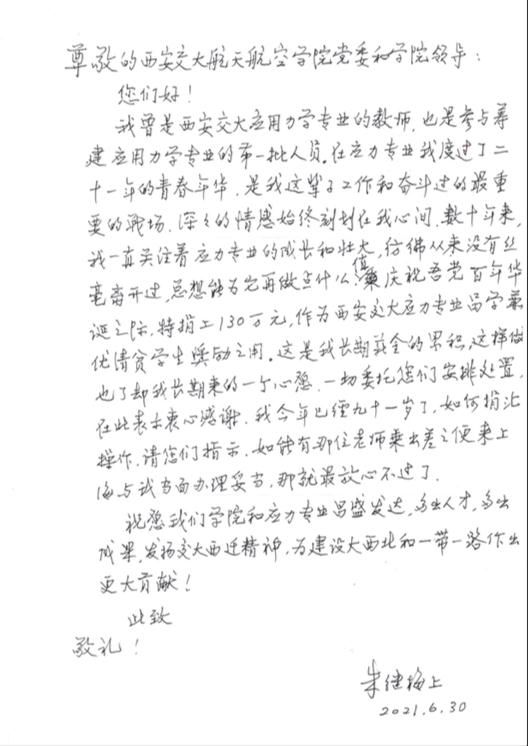 尊敬的西安交大航天航空学院党委和学院领导：
您们好！
我曾是西安交大应用力学专业的教师，也是参与筹
建应用力学专业的第一批人员。在应力专业我度过了二
十一年的青春年华，是我这辈子工作和奋斗过的最重
要的战场，深深的情感始终刻划在我心间，数十年来，
我一直关注着应力专业的成长和壮大，仿佛从来没有丝
毫离开过，总想能为它再做点什么，值兹庆祝吾党百年华
诞之际，特捐上130万元，作为西安交大应力专业品学兼
优清贫学生奖励之用。这是我长期薪金的累积，这样做
也了却我长期来的一个心愿，一切委托您们安排处置，
在此表示衷心感谢。我今年已经九十一岁了，如何捐汇
操作，请您们指示，如能有那位老师乘出差之便来上
海与我当面办理妥当，那就最放心不过了。
祝愿我们学院和应力专业昌盛发达，多出人才，多出
成果，发扬交大西迁精神，为建设大西北和一带一路作出
更大贡献！
此致
敬礼！
朱继梅上
2021.6.30